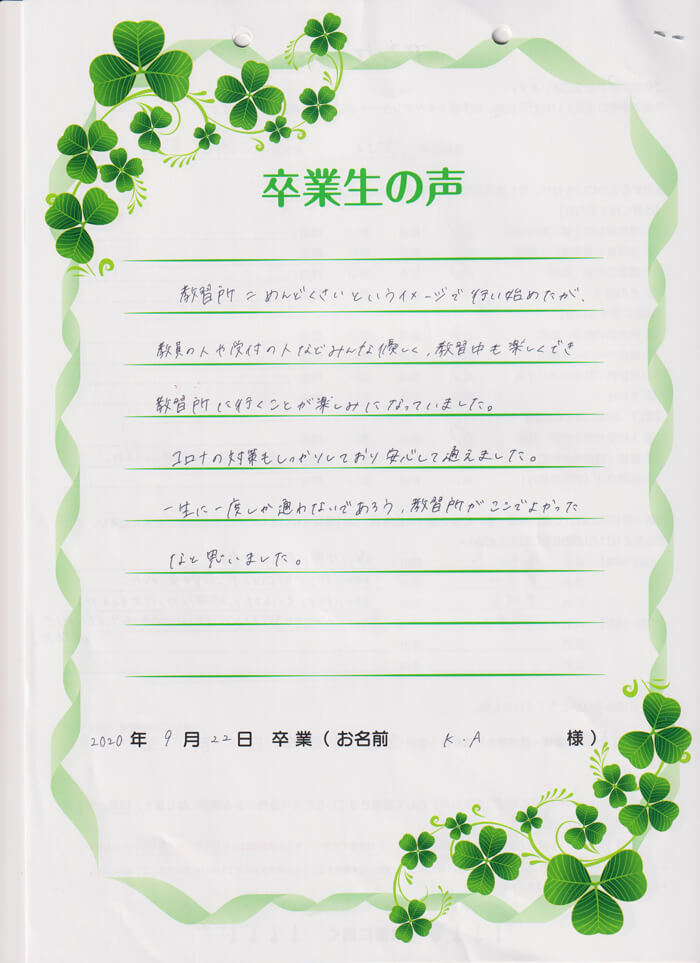 卒業生の声
教習所=めんどくさいというイメージで行い始めたが、
教員の人や受付の人などみんな優しく、教習中も楽しくでき
教習所に行くことが楽しみになっていました。
コロナの対策もしっかりしており安心して通えました。
一生に一度しか通わないであろう、教習所がここでよかった
なと思いました。
2020年 9月 22日 卒業(お名前 K.A 様)